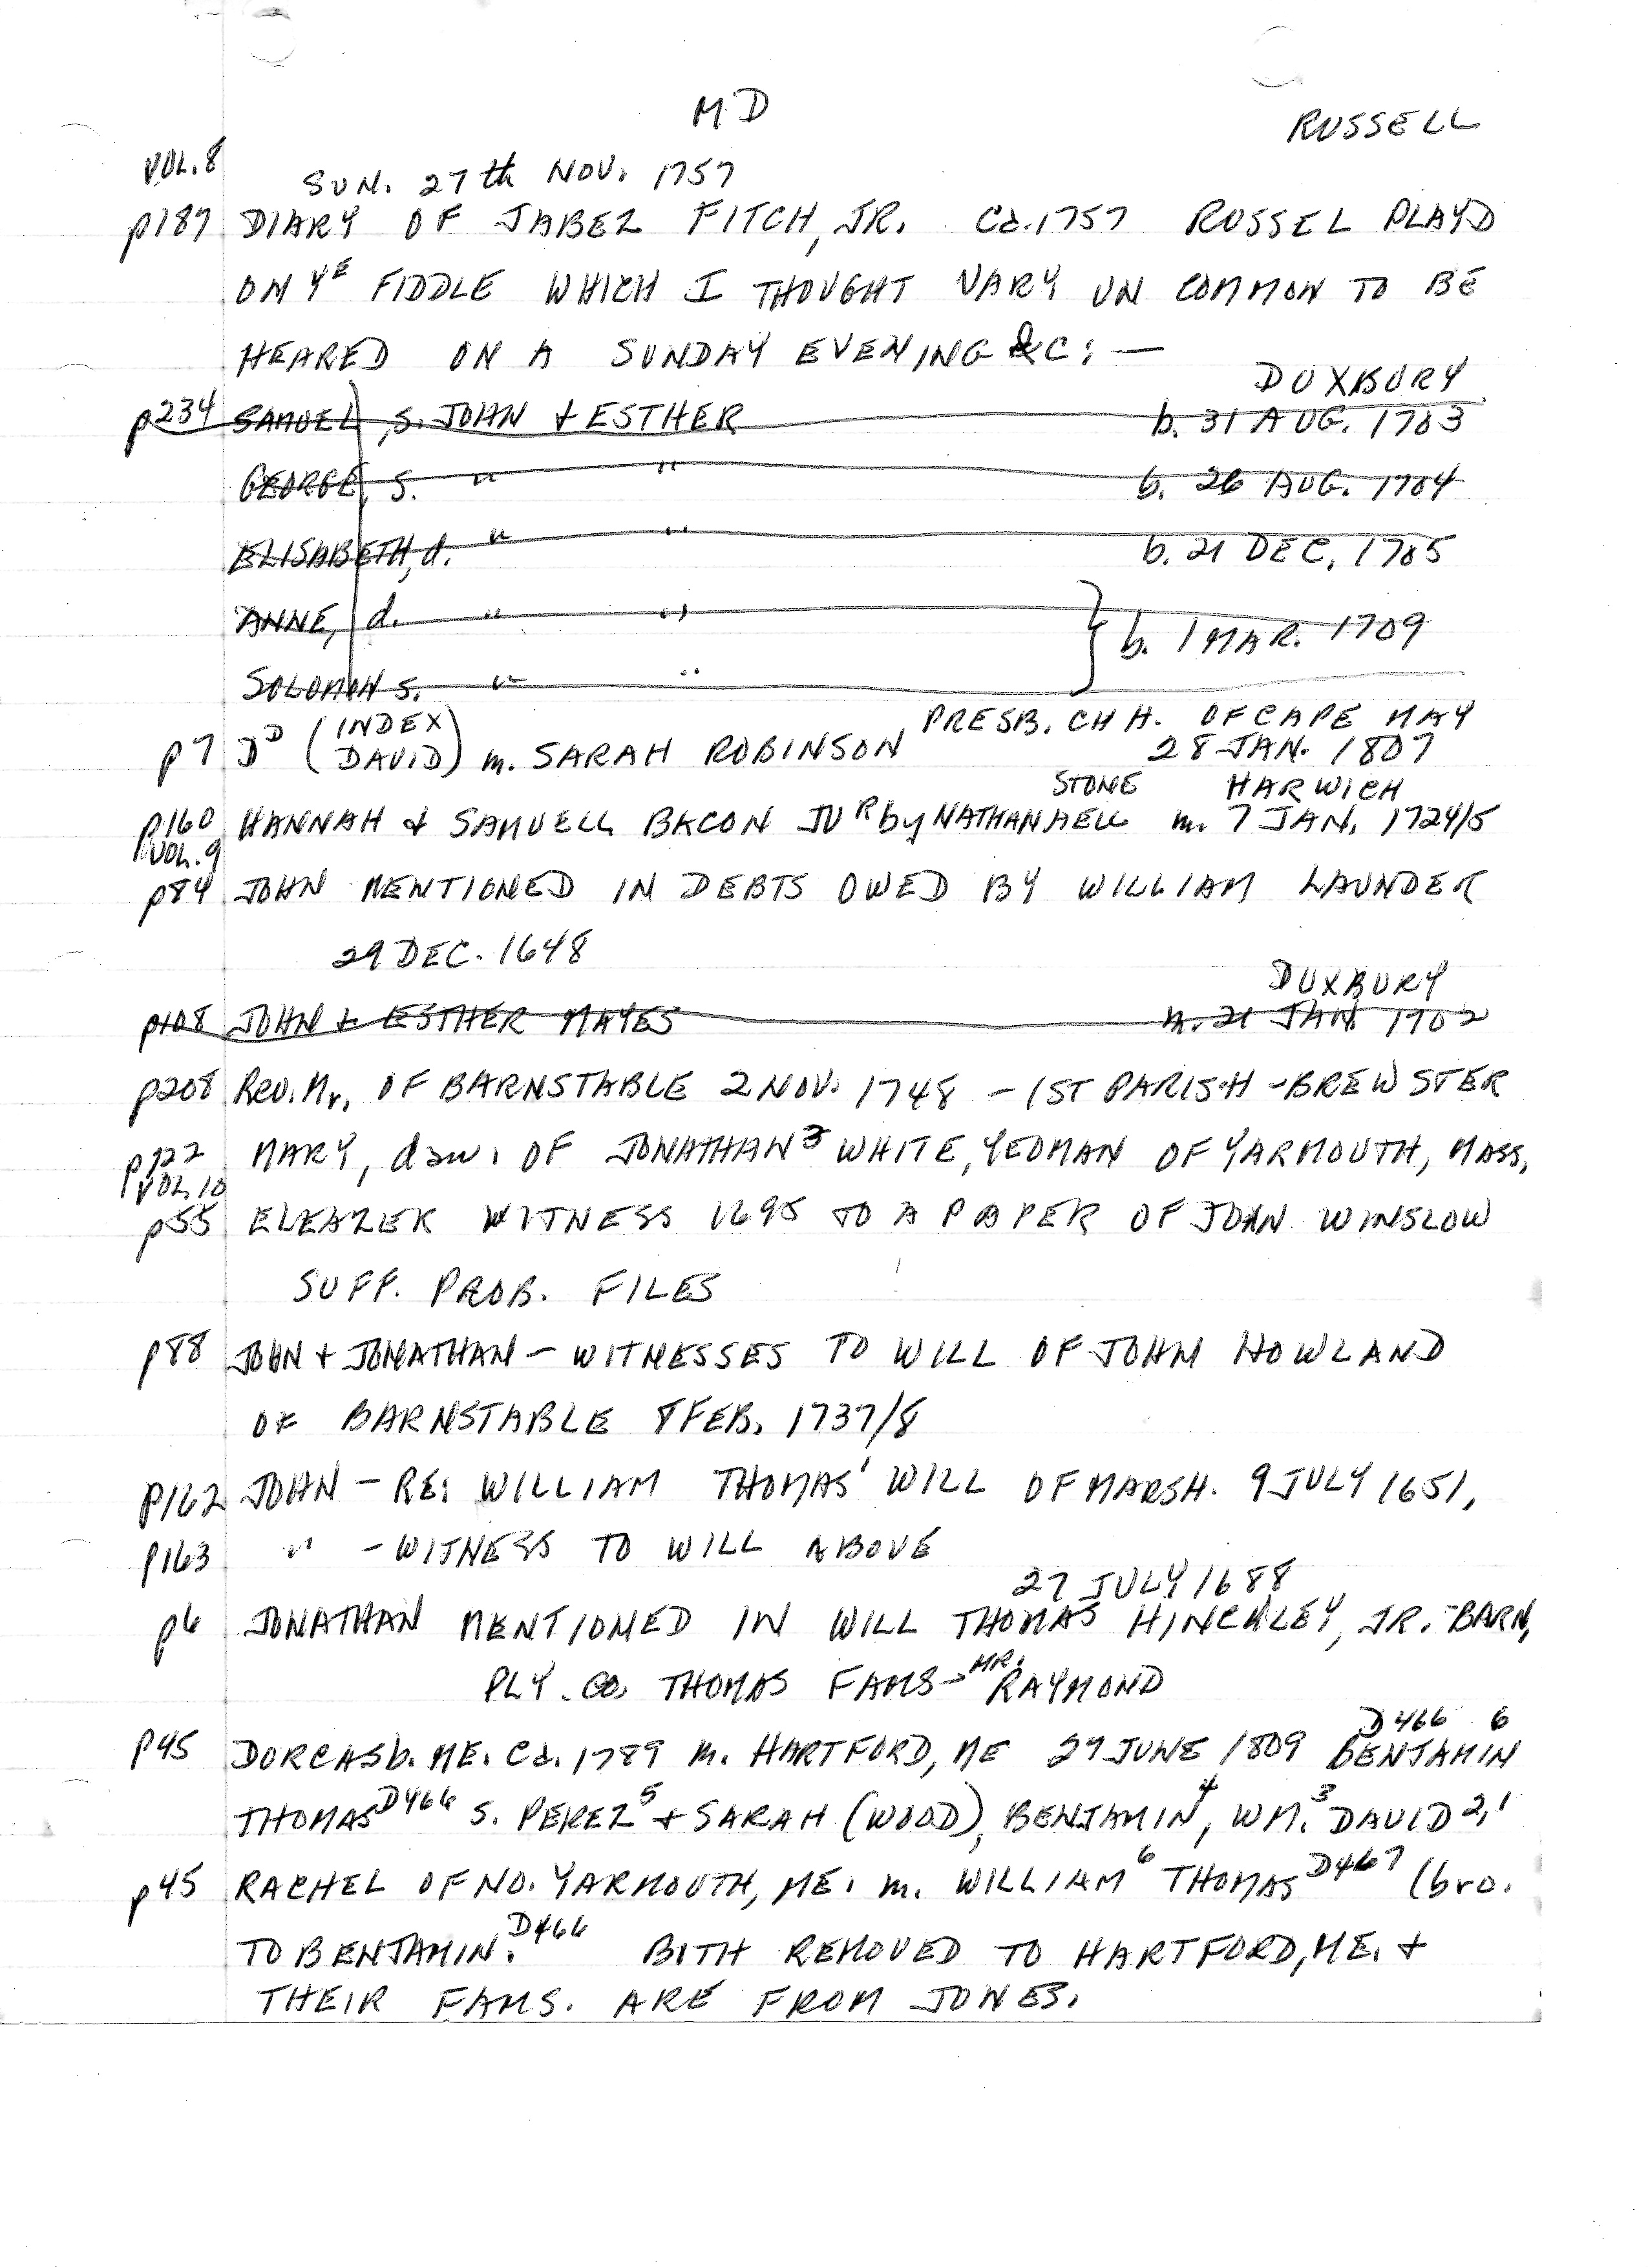 MD
RUSSELL
VOL. 8
SUN. 27th NOV. 1757
p187 DIARY OF JABEZ FITCH, JR. Ca. 1757 RUSSEL PLAYD
ON YE FIDDLE WHICH I THOUGHT VARY UN COMMON TO BE
HEARED ON A SUNDAY EVENING &C: —
DUXBURY
p234 SAMUEL, s. JOHN + ESTHER b. 31 AUG. 1703
GEORGE, s. " " b. 26 AUG. 1704
ELISABETH, d. " " b. 21 DEC. 1705
ANNE, d. " " } b. 1 MAR. 1709
SOLOMON s. " "
PRESB. CHH. OF CAPE MAY
p7 DD (INDEX DAVID) m. SARAH ROBINSON 28 JAN. 1807
STONE HARWICH
p160 HANNAH & SAMUELL BACON JUR by NATHANAELL m. 7 JAN. 1724/5
VOL. 9
p84 JOHN MENTIONED IN DEBTS OWED BY WILLIAM LAUNDER
29 DEC. 1648
DUXBURY
p108 JOHN + ESTHER MAYES m. 21 JAN. 1702
p208 Rev. Mr. OF BARNSTABLE 2 NOV. 1748 - 1ST PARISH - BREWSTER
p122 MARY, dau. OF JONATHAN3 WHITE, YEOMAN OF YARMOUTH, MASS.
VOL. 10
p55 ELEAZER WITNESS 1695 TO A PAPER OF JOHN WINSLOW
SUFF. PROB. FILES
p88 JOHN + JONATHAN - WITNESSES TO WILL OF JOHN HOWLAND
OF BARNSTABLE 8 FEB. 1737/8
p162 JOHN - RE: WILLIAM THOMAS' WILL OF MARSH. 9 JULY 1651.
p163 " - WITNESS TO WILL ABOVE
27 JULY 1688
p6 JONATHAN MENTIONED IN WILL THOMAS HINCKLEY, JR. - BARN.
PLY. CO. THOMAS FAMS - MR. RAYMOND
D466 6
p45 DORCAS b. ME. Ca. 1789 m. HARTFORD, ME 29 JUNE 1809 BENJAMIN
THOMAS D466 s. PEREZ5 + SARAH (WOOD), BENJAMIN4, WM.3 DAVID 2,1
p45 RACHEL OF NO. YARMOUTH, ME. m. WILLIAM6 THOMAS D467 (bro.
TO BENJAMIN. D466 BITH REMOVED TO HARTFORD, ME. +
THEIR FAMS. ARE FROM JONES.